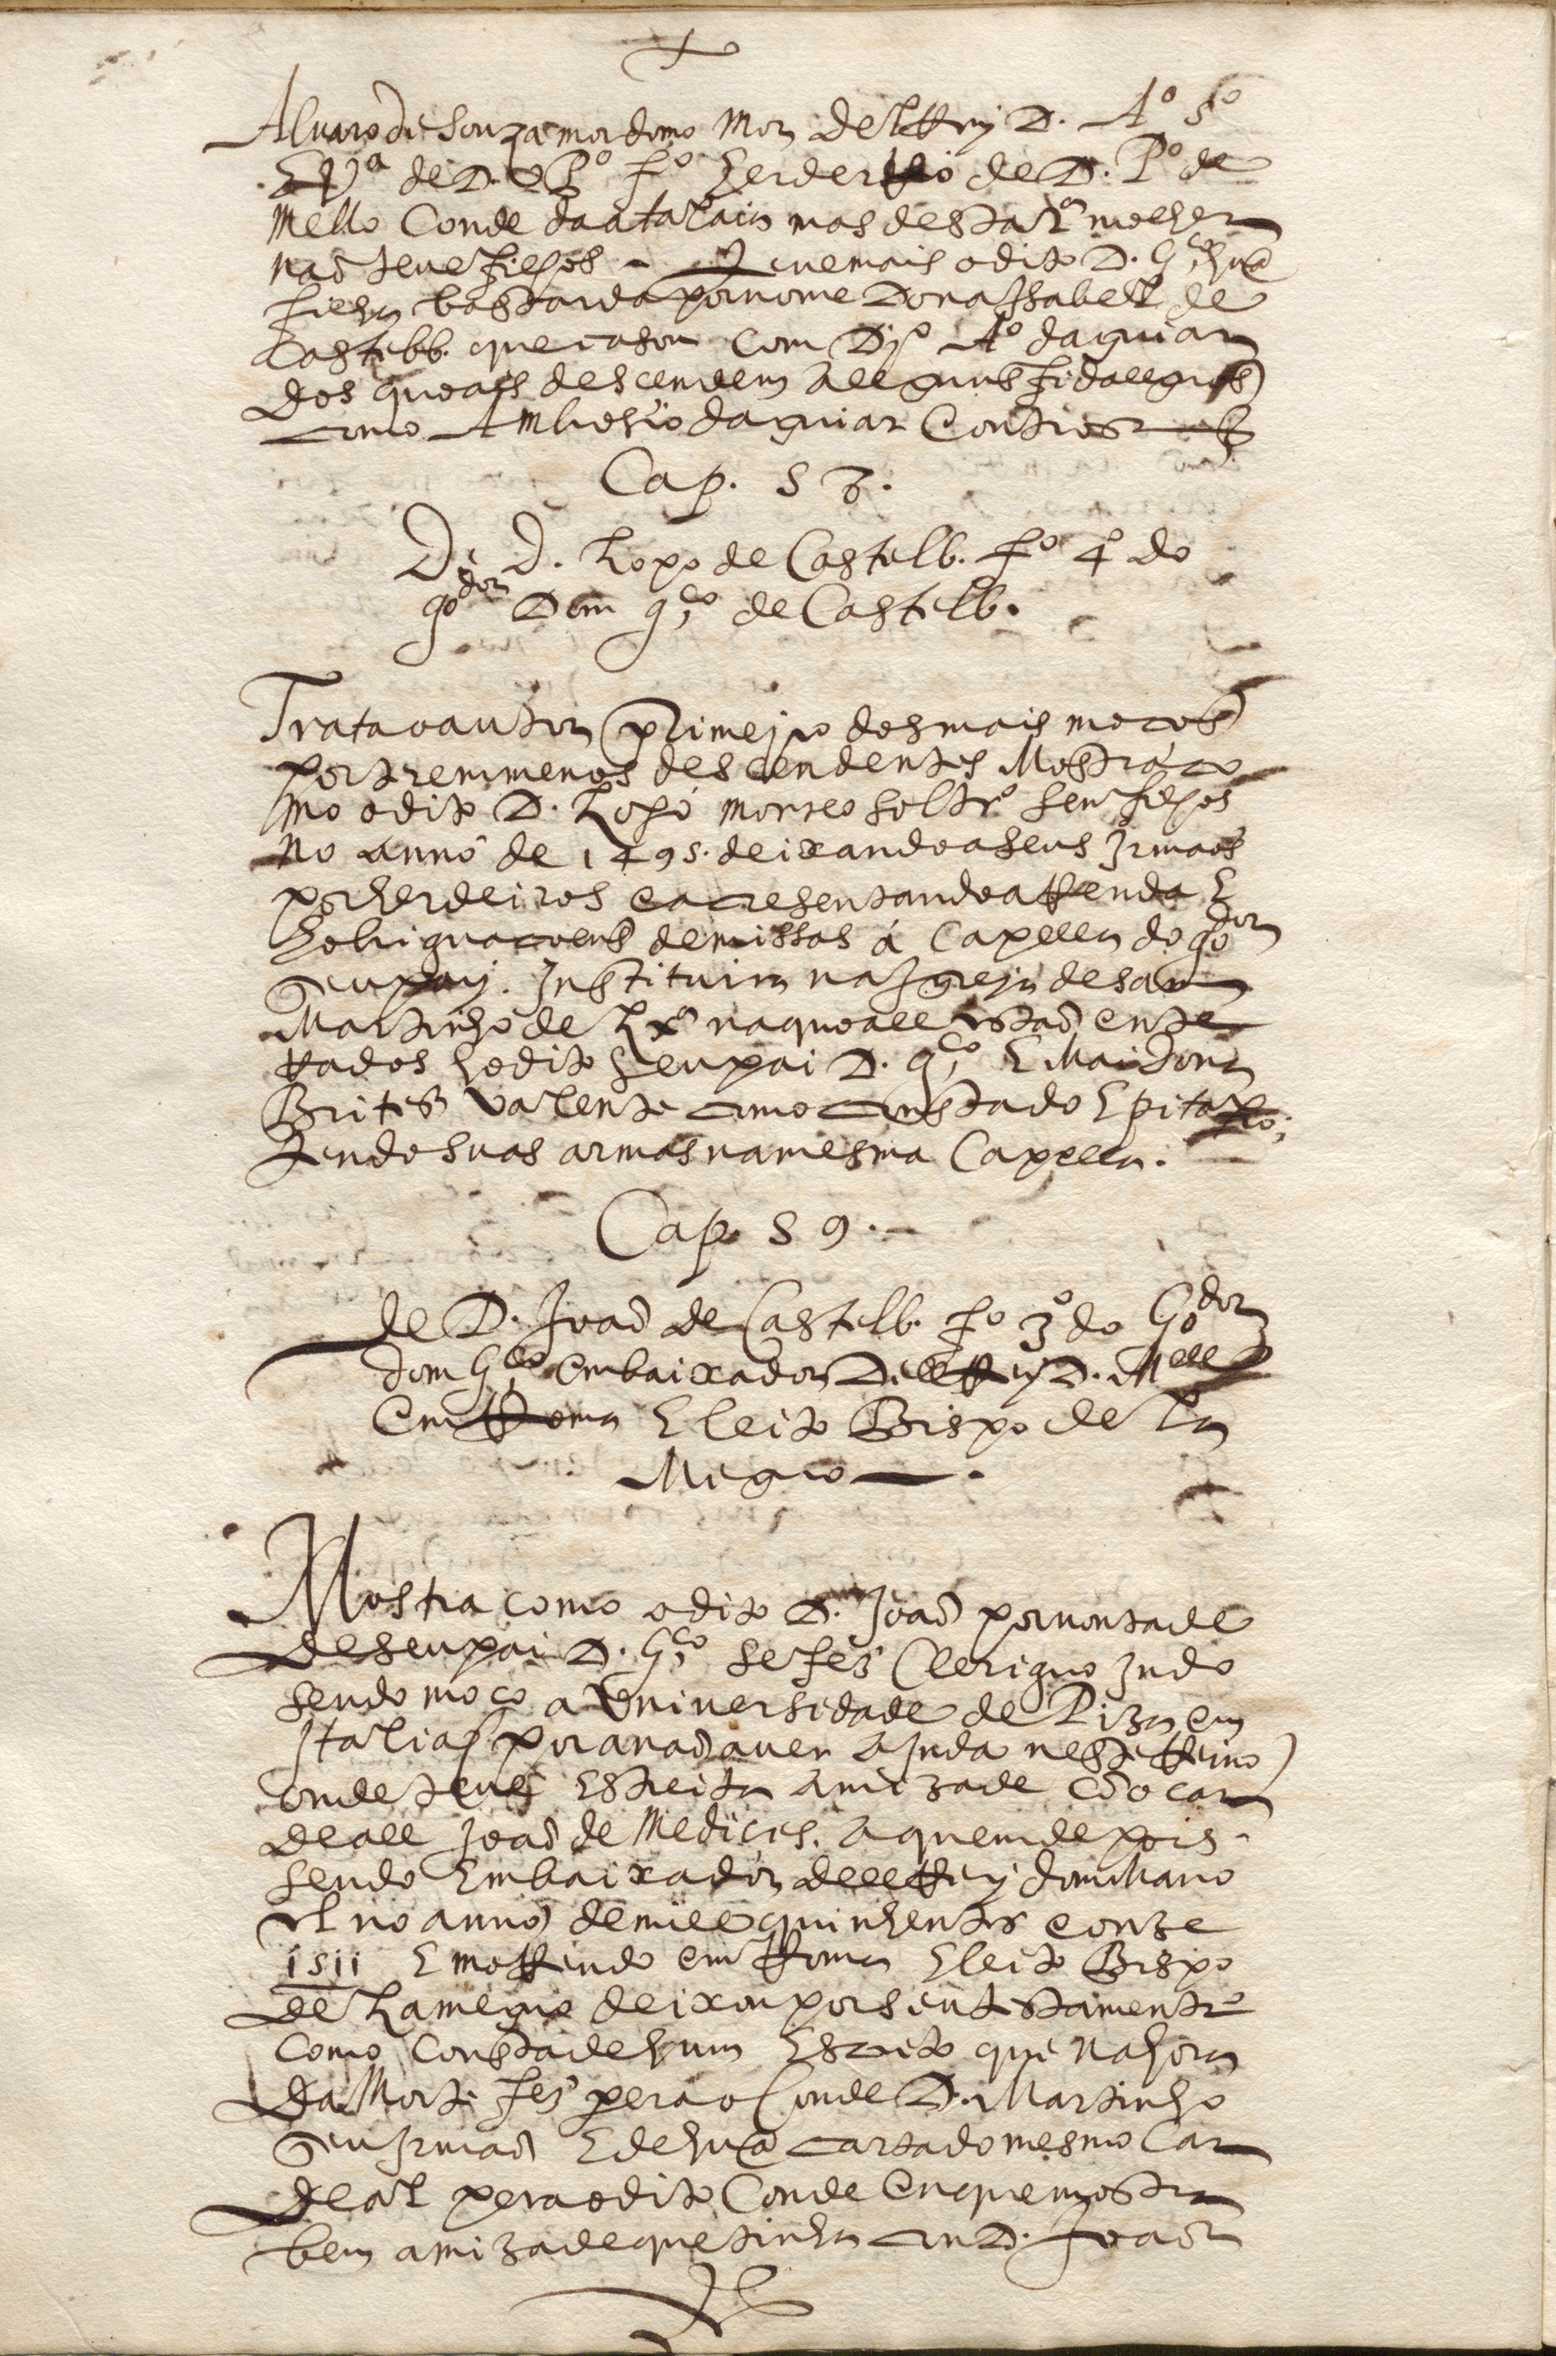 Aluaro de Souza mordomo Mor delRey D. Aº 5º
E vª de D. Pº fº herdeiro de D. Pº de
Mello Conde da atalaia mas desta molher
naõ teue filhos - Teue mais o dito D. Gco hua
filha bastarda por nome Dona Issabell de
Castelb. que casou com Dyº Aº daguiar
dos quoais descendem alleguns fidallegos
como Ambrosio daguiar Coutinho
Cap. 58.
De D. Lopo de Castelb. fº 4º do
godor Dom gco de Castelb.
Trata o autor primejro dos mais mocos
por terem menos descendentes Mostra co
mo o dito D. Lopo morreo soltrº sem filhos
No anno de 1495. deixando a seus Irmaõs
por herdeiros e acresentando a Renda E
hobriguacoens de missas á Capella do godor
seu paj. Instituira na Igreja de sam
Martinho de Lxª na quoall estaõ enter
rados ho dito seu pai D. gco E Mai dona
Brites Valente como consta do Epitafio;
tendo suas armas na mesma Capella.
Cap. 59.
de D. Joaõ de Castelb. fº 3º do Godor
dom Gco embaixador DellRey D. Mell
em Roma Eleito Bispo de La
Meguo
Mostra como o dito D. Joaõ por vontade
de seu pai D. Gco se fes Cleriguo Indo
sendo moço a Vniuersidade de Piza em
Italia (por a naõ auer ainda neste Reino)
onde teue Estreita amizade cõ o car
deall Joaõ de Medices. a quem depois
sendo Embaixador dellRey dom Mano
el no anno de mill e quinhentos e onze
1511 E morrendo em Roma Eleito Bispo
de Lameguo deixou por seu testamentrº
como consta de hum Escrito que na hora
da Morte fes pera o Conde D. Martinho
seu Irmaõ E de hua carta do mesmo Car
deal pera o dito Conde em que mostra
bem amizade que tinha com D. Joaõ